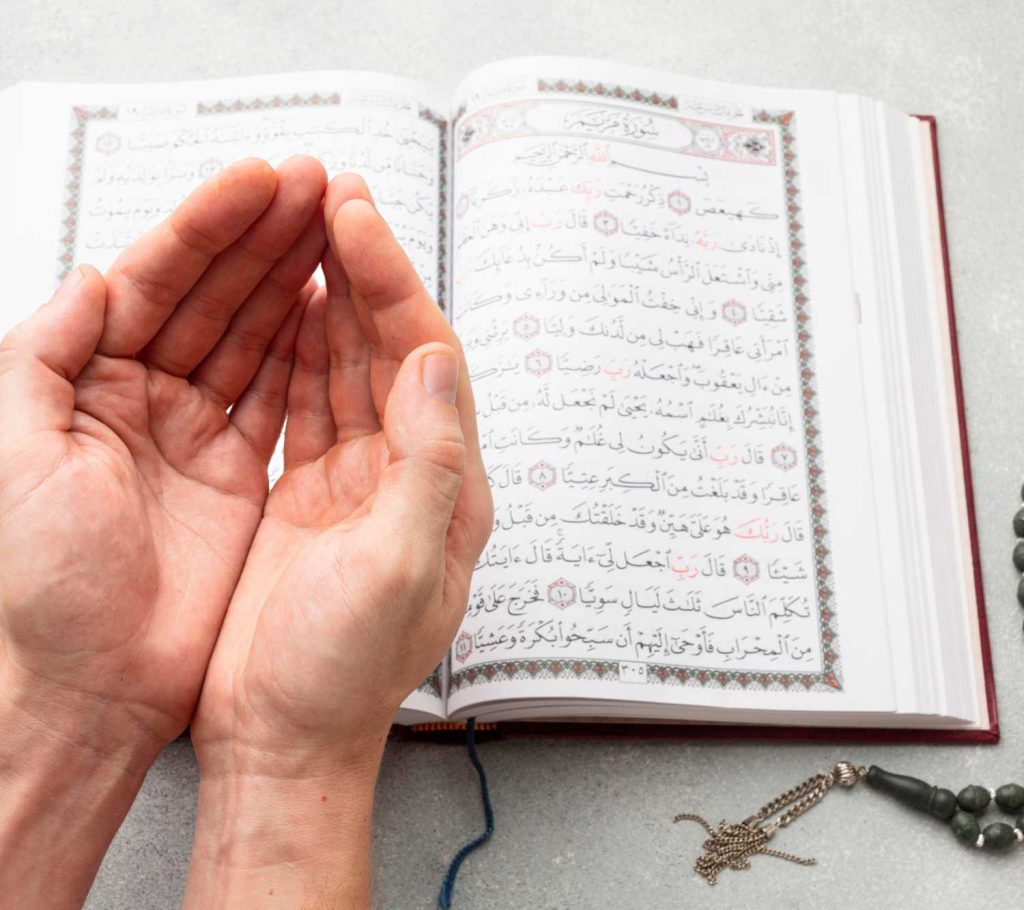 سُورَةُ مَرْيَمَ
بِسْمِ ٱللَّهِ ٱلرَّحْمَٰنِ ٱلرَّحِيمِ
كٓهيعٓصٓ ١ ذِكْرُ رَحْمَتِ رَبِّكَ عَبْدَهُۥ زَكَرِيَّآ
إِذْ نَادَىٰ رَبَّهُۥ نِدَآءً خَفِيًّا ٣ قَالَ رَبِّ إِنِّي وَهَنَ ٱلْعَظْمُ
مِنِّي وَٱشْتَعَلَ ٱلرَّأْسُ شَيْبًا وَلَمْ أَكُنۢ بِدُعَآئِكَ
شَقِيًّا ٤ وَإِنِّي خِفْتُ ٱلْمَوَٰلِيَ مِن وَرَآءِي وَكَانَتِ
ٱمْرَأَتِي عَاقِرًا فَهَبْ لِي مِن لَّدُنكَ وَلِيًّا ٥ يَرِثُنِي
مِنْ ءَالِ يَعْقُوبَ وَٱجْعَلْهُ رَبِّ رَضِيًّا ٦ يَٰزَكَرِيَّآ
إِنَّا نُبَشِّرُكَ بِغُلَٰمٍ ٱسْمُهُۥ يَحْيَىٰ لَمْ نَجْعَل لَّهُۥ مِن قَبْلُ
٧ قَالَ رَبِّ أَنَّىٰ يَكُونُ لِي غُلَٰمٌ وَكَانَتِ
عَاقِرًا وَقَدْ بَلَغْتُ مِنَ ٱلْكِبَرِ عِتِيًّا ٨ قَالَ
قَالَ رَبُّكَ هُوَ عَلَيَّ هَيِّنٌ وَقَدْ خَلَقْتُكَ مِن قَبْلُ
شَيْـًٔا ٩ قَالَ رَبِّ ٱجْعَل لِّيٓ ءَايَةً قَالَ ءَايَتُكَ
تُكَلِّمَ ٱلنَّاسَ ثَلَٰثَ لَيَالٍ سَوِيًّا ١٠ فَخَرَجَ عَلَىٰ قَوْمِهِۦ
مِنَ ٱلْمِحْرَابِ فَأَوْحَىٰٓ إِلَيْهِمْ أَن سَبِّحُوا۟ بُكْرَةً وَعَشِيًّا ١١
٣٠٥
يَٰيَحْيَىٰ خُذِ ٱلْكِتَٰبَ بِقُوَّةٍ وَءَاتَيْنَٰهُ ٱلْحُكْمَ صَبِيًّا ١٢
وَحَنَانًا مِّن لَّدُنَّا ١٣ وَبَرًّۢا بِوَٰلِدَيْهِ وَلَمْ
يَكُن
وَيَوْمَ يَمُوتُ